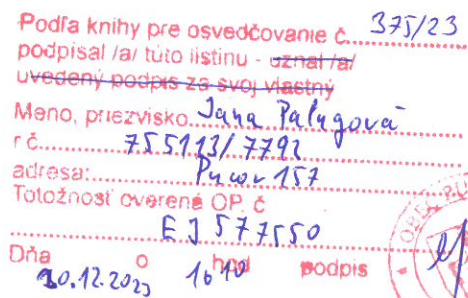 Podľa knihy pre osvedčovanie č. 375/23
podpísal /a/ túto listinu - uznal /a/
uvedený podpis za svoj vlastný
Meno, priezvisko Jana Palugová
r č. 755113/7792
adresa: Pucov 157
Totožnosť overená OP. č
EJ 577550
Dňa o hod podpis
20.12.2023 16 10
OBEC PU